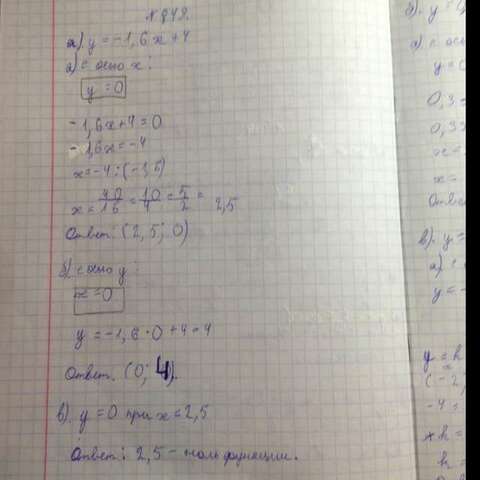 №848.
а). y = -1,6x+4
а) с осью x:
y = 0
-1,6x+4=0
-1,6x=-4
x=-4:(-1,6)
x = 40/16 = 10/4 = 5/2 = 2,5
Ответ: (2,5; 0)
б) с осью y:
x=0
y = -1,6·0+4=4
Ответ. (0; 4).
в). y=0 при x=2,5
Ответ: 2,5 - ноль функции.
б). y =
а) с ось
y =
0,3
0,3x
x=
x=
Ответ
в). y=
а) с
y = -
y = k
(-2
-4=
k =